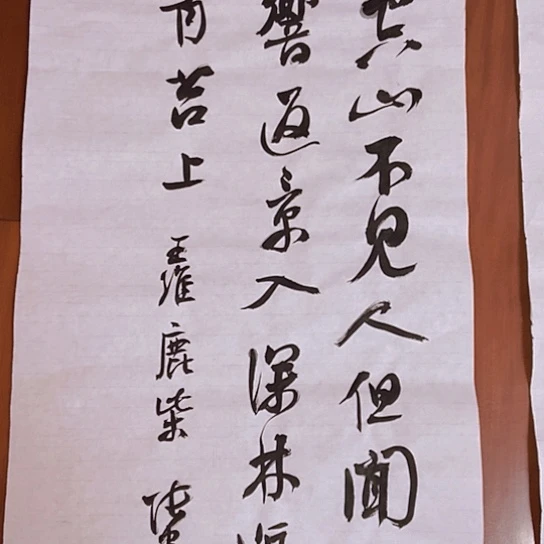 空山不見人但聞
響返景入深林
青苔上 王維鹿柴